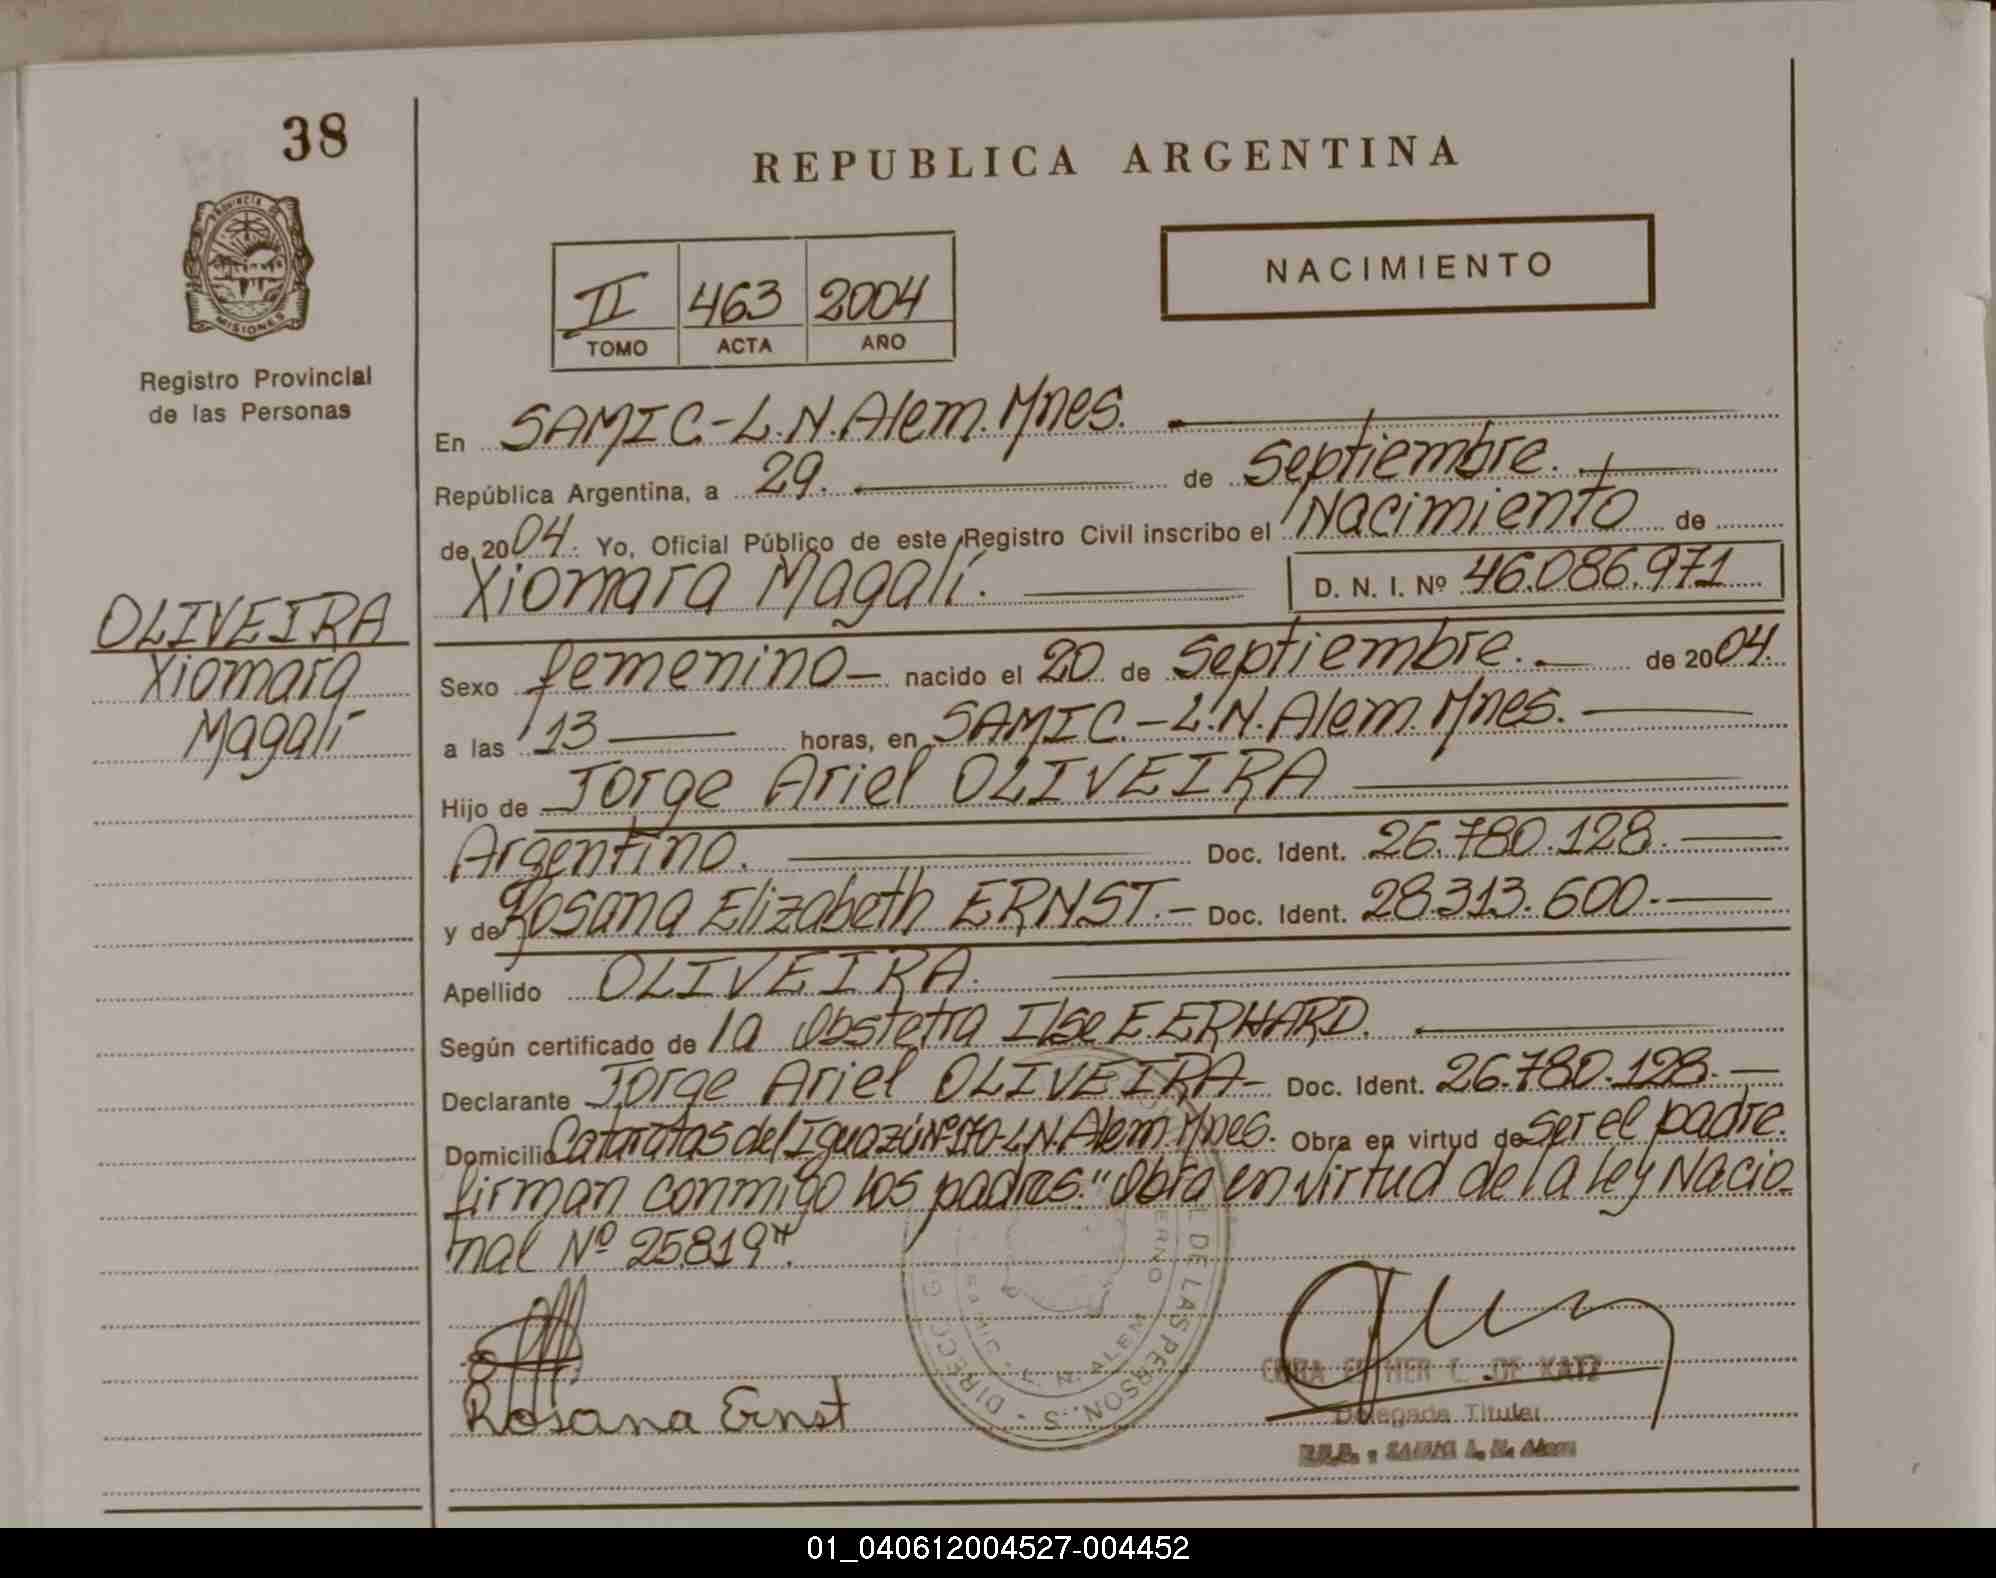 38
REPUBLICA ARGENTINA
PROVINCIA DE
MISIONES
Registro Provincial
de las Personas
II 463 2004
TOMO ACTA AÑO
NACIMIENTO
En SAMIC-L.N.Alem.Mnes.
República Argentina, a 29. de Septiembre.
de 2004. Yo, Oficial Público de este Registro Civil inscribo el Nacimiento de
Xiomara Magalí. D. N. I. Nº 46.086.971
OLIVEIRA
Xiomara
Magalí
Sexo femenino- nacido el 20 de Septiembre. de 2004.
a las 13 horas, en SAMIC.-L.N.Alem.Mnes.
Hijo de Jorge Ariel OLIVEIRA
Argentino. Doc. Ident. 26.780.128.
y de Rosana Elizabeth ERNST.- Doc. Ident. 28.313.600.
Apellido OLIVEIRA.
Según certificado de la Obstetra Ilse E. ERHARD.
Declarante Jorge Ariel OLIVEIRA- Doc. Ident. 26.780.128.
Domicilio Cataratas del Iguazú Nº170-L.N.Alem.Mnes. Obra en virtud de ser el padre.
firman conmigo los padres. "Obra en virtud de la Ley Nacio
nal Nº 25.819".
Rosana Ernst
L DE LAS PERSONAS · DIRECC
SAMIC - L. N. ALEM
ESTHER C. DE KATZ
Delegada Titular
SAMIC L. N. Alem
01_040612004527-004452